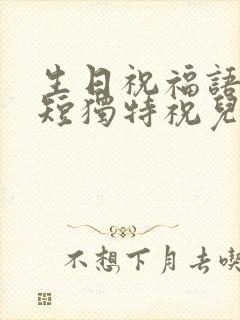 生日祝福語
短獨特祝兒
不想下月去喫